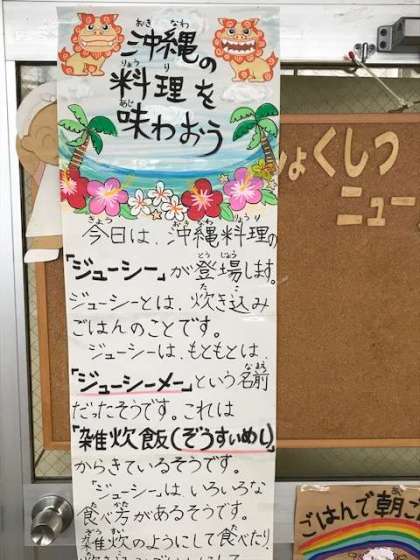 沖縄の
料理を
味わおう
今日は、沖縄料理の
「ジューシー」が登場します。
ジューシーとは、炊き込み
ごはんのことです。
ジューシーは、もともとは、
「ジューシーメー」という名前
だったそうです。これは
「雑炊飯(ぞうすいめし)」
からきているそうです。
「ジューシー」は いろいろな
食べ方があるそうです。
雑炊のようにして食べたり
ょくしつ
ニュー
ごはんで朝ご